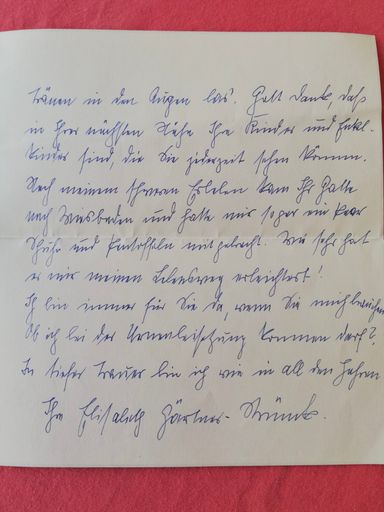 Tränen in den Augen las. Gott Dank, daß
in Ihrer nächsten Nähe Ihre Kinder und Enkel-
kinder sind, die Sie jederzeit sehen können.
Nach meinem schweren Erleben kam Ihr Gatte
nach Wiesbaden und hatte mir sogar ein Paar
Schuhe und Pantoffeln mitgebracht. Wie sehr hat
er mir meinen Lebensweg erleichtert!
Ich bin immer für Sie da, wenn Sie mich brauchen
Ob ich bei der Urnenbeisetzung kommen darf?
In tiefer Trauer bin ich wie in all den Jahren
Ihre Elisabeth Gärtner-